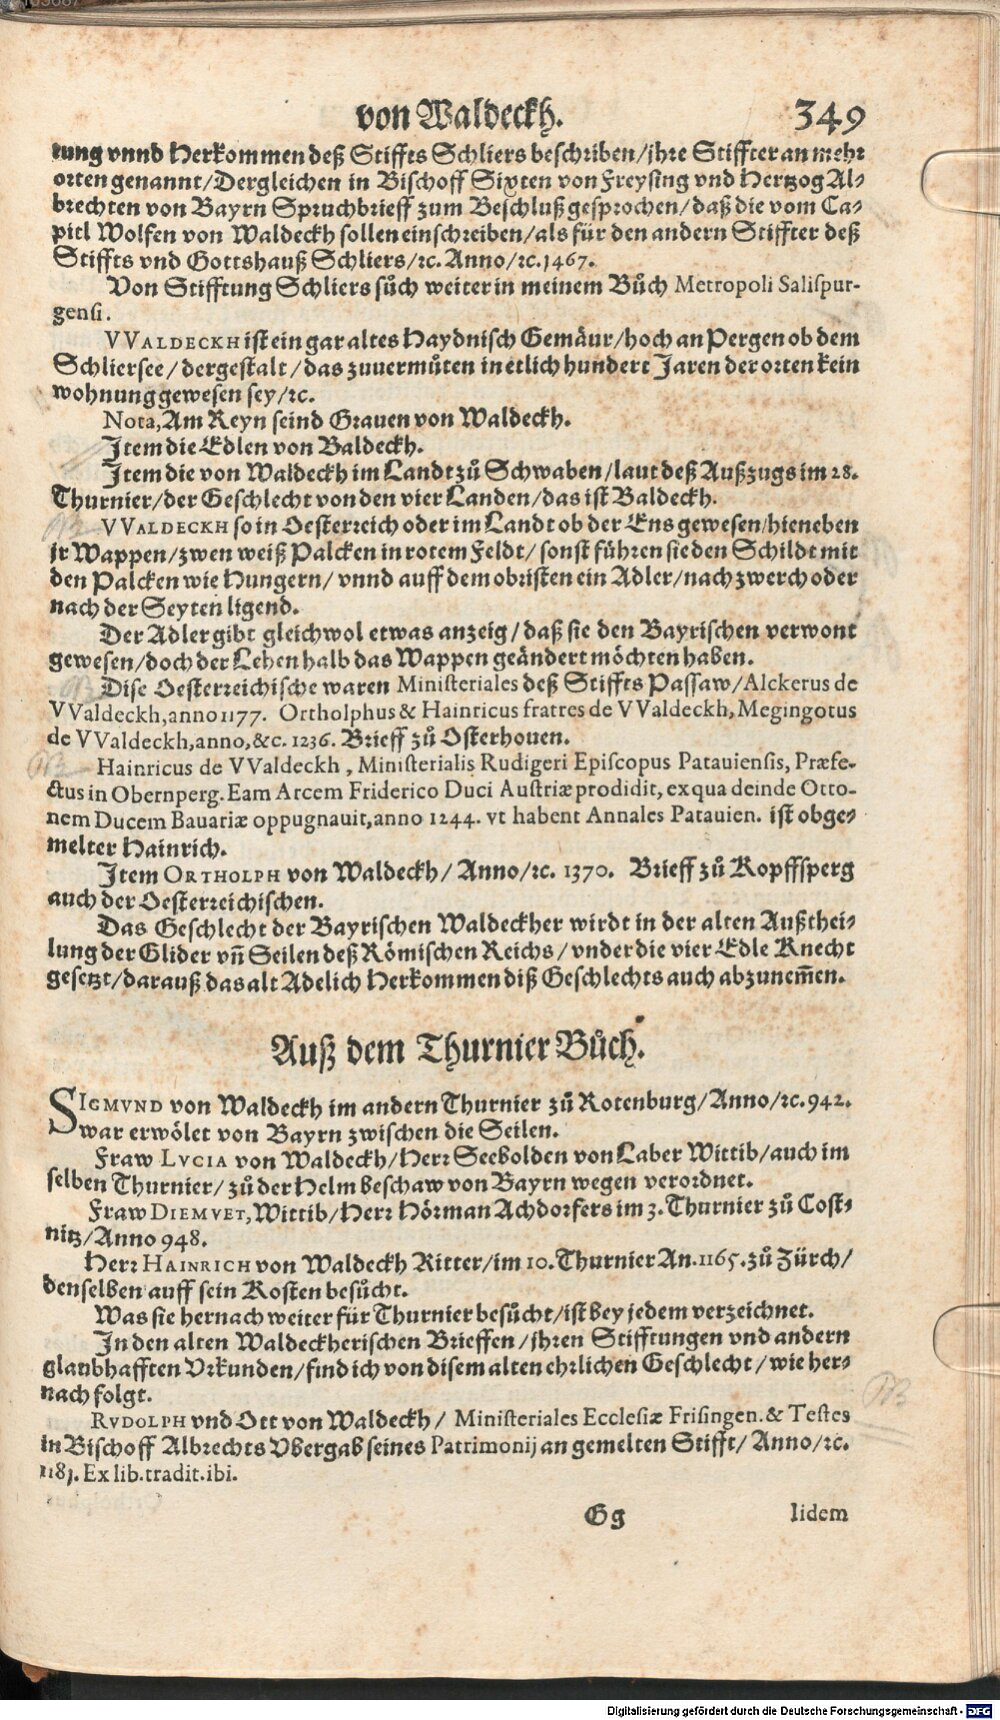 von Waldeckh. 349
tung vnnd Herkommen deß Stiffts Schliers beschriben/jhre Stiffter an mehr
orten genannt/Dergleichen in Bischoff Sixten von Freysing vnd Hertzog Al⸗
brechten von Bayrn Spruchbrieff zum Beschluß gesprochen/daß die vom Ca⸗
pitl Wolfen von Waldeckh sollen einschreiben/als für den andern Stiffter deß
Stiffts vnd Gottshauß Schliers/ꝛc. Anno/ꝛc.1467.
Von Stifftung Schliers sůch weiter in meinem Bůch Metropoli Salispur-
gensi.
VVALDECKH ist ein gar altes Haydnisch Gemäur/hoch an Pergen ob dem
Schliersee/dergestalt/das zuuermůten in etlich hundert Jaren der orten kein
wohnung gewesen sey/ꝛc.
Nota,Am Reyn seind Grauen von Waldeckh.
Jtem die Edlen von Baldeckh.
Jtem die von Waldeckh im Landt zů Schwaben/laut deß Außzugs im 28.
Thurnier/der Geschlecht von den vier Landen/das ist Baldeckh.
VVALDECKH so in Oesterreich oder im Landt ob der Ens gewesen/hieneben
jr Wappen/zwen weiß Palcken in rotem Feldt/sonst führen sie den Schildt mit
den Palcken wie Hungern/vnnd auff dem obristen ein Adler/nach zwerch oder
nach der Seyten ligend.
Der Adler gibt gleichwol etwas anzeig/daß sie den Bayrischen verwont
gewesen/doch der Lehen halb das Wappen geändert möchten haben.
Dise Oesterreichische waren Ministeriales deß Stiffts Passaw/Alckerus de
VValdeckh,anno 1177. Ortholphus & Hainricus fratres de VValdeckh, Megingotus
de VValdeckh,anno,&c. 1236. Brieff zů Osterhouen.
Hainricus de VValdeckh, Ministerialis Rudigeri Episcopus Patauiensis, Præfe-
ctus in Obernperg. Eam Arcem Friderico Duci Austriæ prodidit, ex qua deinde Otto-
nem Ducem Bauariæ oppugnauit,anno 1244. vt habent Annales Patauien. ist obge⸗
melter Hainrich.
Jtem ORTHOLPH von Waldeckh/ Anno/ꝛc. 1370. Brieff zů Kopffsperg
auch der Oesterreichischen.
Das Geschlecht der Bayrischen Waldeckher wirdt in der alten Außthei⸗
lung der Glider vñ Seilen deß Römischen Reichs/vnder die vier Edle Knecht
gesetzt/darauß das alt Adelich Herkommen diß Geschlechts auch abzunem̃en.
Auß dem Thurnier Bůch.
SIGMVND von Waldeckh im andern Thurnier zů Rotenburg/Anno/ꝛc.942.
war erwölet von Bayrn zwischen die Seilen.
Fraw LVCIA von Waldeckh/Herr Seebolden von Laber Wittib/auch im
selben Thurnier/zů der Helmbeschaw von Bayrn wegen verordnet.
Fraw DIEMVET,Wittib/Herr Hörman Achdorfers im 3.Thurnier zů Cost⸗
nitz/Anno 948.
Herr HAINRICH von Waldeckh Ritter/im 10.Thurnier An.1165.zů Zürch/
denselben auff sein Kosten besůcht.
Was sie hernach weiter für Thurnier besůcht/ist bey jedem verzeichnet.
Jn den alten Waldeckherischen Brieffen/jhren Stifftungen vnd andern
glaubhafften Vrkunden/find ich von disem alten ehrlichen Geschlecht/wie her⸗
nach folgt.
RVDOLPH vnd Ott von Waldeckh/ Ministeriales Ecclesiæ Frisingen. & Testes
in Bischoff Albrechts Vbergab seines Patrimonij an gemelten Stifft/Anno/ꝛc.
1181. Ex lib.tradit.ibi.
Gg Iidem
Digitalisierung gefördert durch die Deutsche Forschungsgemeinschaft - DFG